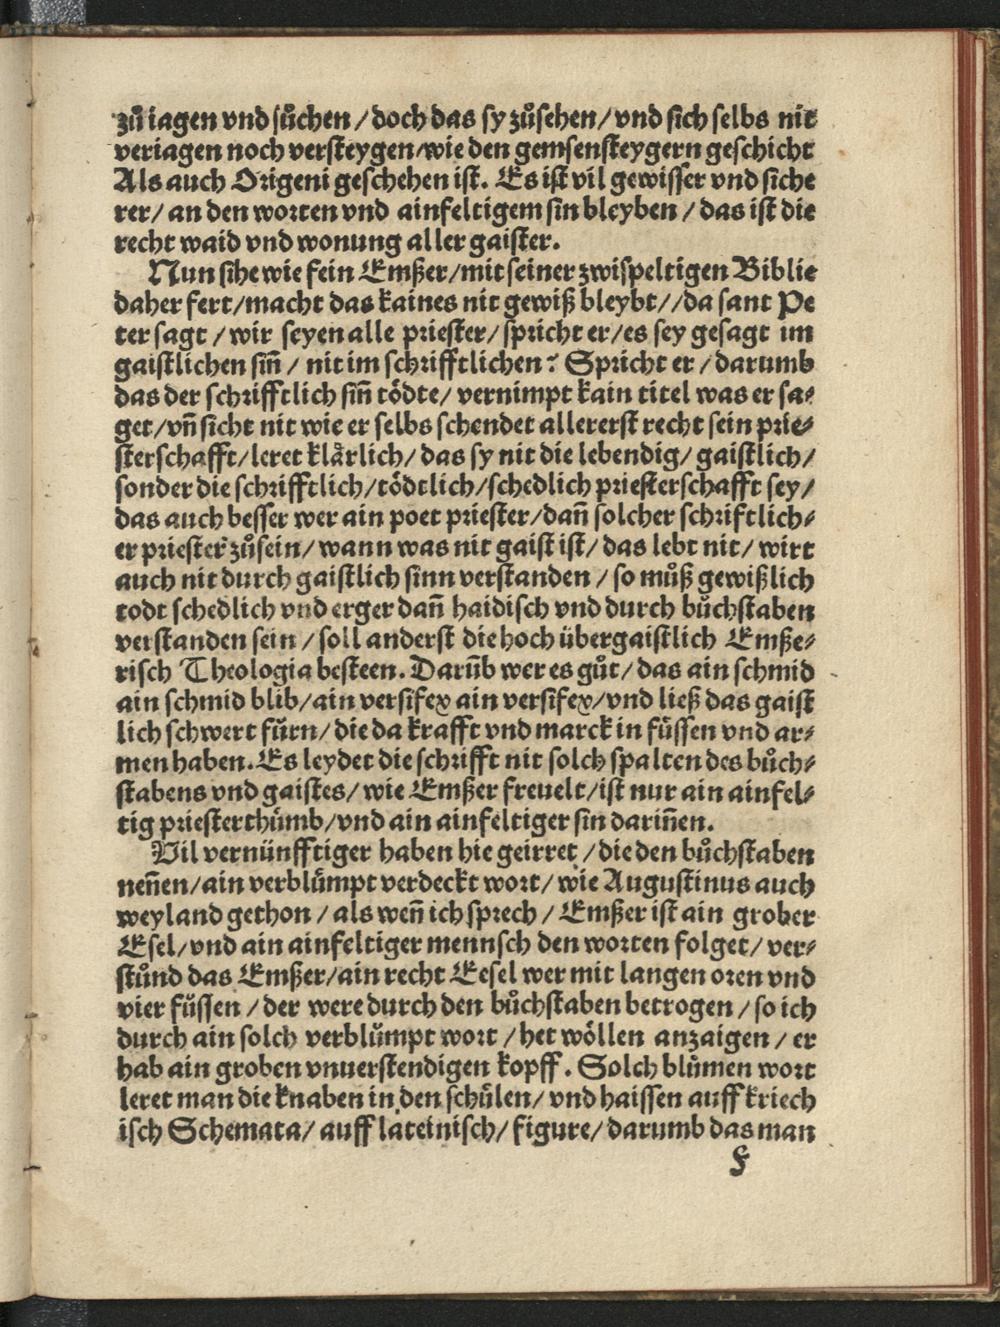 zuͦ iagen vnd suͦchen / doch das sy zuͦsehen / vnd sich selbs nit
veriagen noch versteygen / wie den gemsensteygern geschicht
Als auch Origeni geschehen ist. Es ist vil gewisser vnd siche
rer / an den worten vnd ainfeltigem sin bleyben / das ist die
recht waid vnd wonung aller gaister.
Nun sihe wie fein Emßer / mit seiner zwispeltigen Biblie
daher fert / macht das kaines nit gewiß bleybt / / da sant Pe
ter sagt / wir seyen alle priester / spricht er / es sey gesagt im
gaistlichen sin̄ / nit im schrifftlichen? Spricht er / darumb
das der schrifftlich sin̄ toͤdte / vernimpt kain titel was er sa⸗
get / vn̄ sicht nit wie er selbs schendet allererst recht sein prie⸗
sterschafft / leret klaͤrlich / das sy nit die lebendig / gaistlich /
sonder die schrifftlich / toͤdtlich / schedlich priesterschafft sey /
das auch besser wer ain poet priester / dan̄ solcher schriftlich⸗
er priester zuͦsein / wann was nit gaist ist / das lebt nit / wirt
auch nit durch gaistlich sinn verstanden / so muͦß gewißlich
todt schedlich vnd erger dan̄ haidisch vnd durch buͦchstaben
verstanden sein / soll anderst die hoch übergaistlich Emße⸗
risch Theologia besteen. Darūb wer es guͦt / das ain schmid
ain schmid blib / ain versifex ain versifex / vnd ließ das gaist
lich schwert fuͤrn / die da krafft vnd marck in fuͤssen vnd ar⸗
men haben. Es leydet die schrifft nit solch spalten des buͦch⸗
stabens vnd gaistes / wie Emßer freuelt / ist nur ain ainfel⸗
tig priesterthuͤmb / vnd ain ainfeltiger sin darin̄en.
Vil vernünfftiger haben hie geirret / die den buͦchstaben
nen̄en / ain verbluͤmpt verdeckt wort / wie Augustinus auch
weyland gethon / als wen̄ ich sprech / Emßer ist ain grober
Esel / vnd ain ainfeltiger mennsch den worten folget / ver⸗
stuͦnd das Emßer / ain recht Eesel wer mit langen oren vnd
vier fuͤssen / der were durch den buͦchstaben betrogen / so ich
durch ain solch verbluͤmpt wort / het woͤllen anzaigen / er
hab ain groben vnuerstendigen kopff. Solch bluͦmen wort
leret man die knaben in den schuͦlen / vnd haissen auff kriech
isch Schemata / auff lateinisch / figure / darumb das man
f